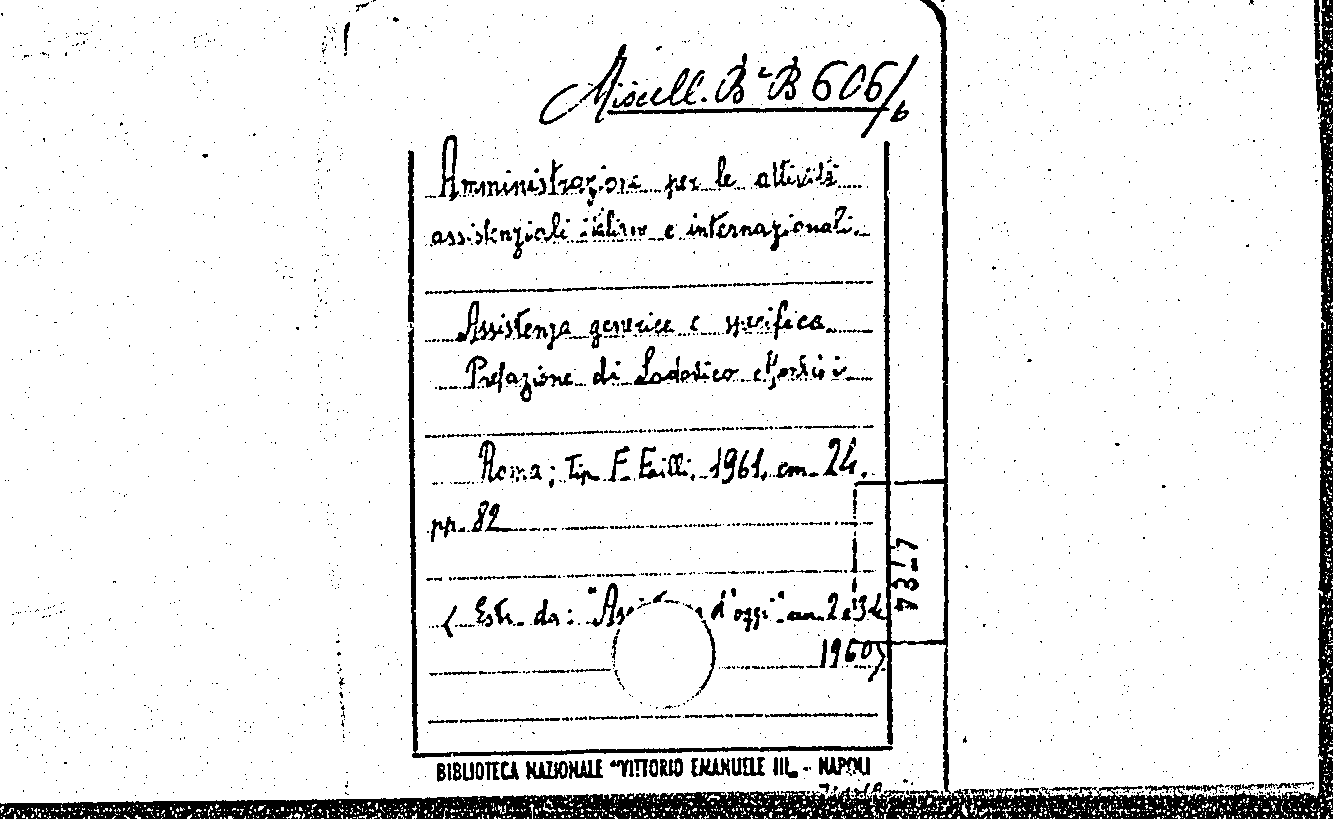 Miscell. B² B 606/6
Amministrazione per le attività
assistenziali italiane e internazionali.
Assistenza generica e specifica
Prefazione di Lodovico
Roma; Tip. F. Failli, 1961, cm. 24.
pp. 82
(Estr. da: "As d'oggi" an. 2 e 3
1960)
BIBLIOTECA NAZIONALE "VITTORIO EMANUELE III„ - NAPOLI